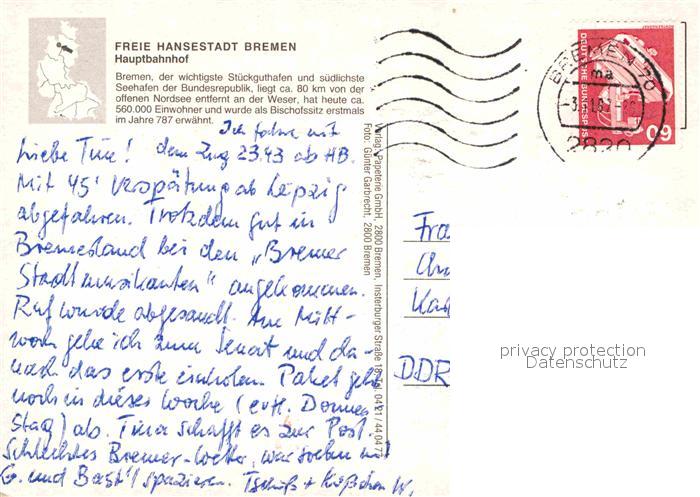 FREIE HANSESTADT BREMEN
Hauptbahnhof
Bremen, der wichtigste Stückguthafen und südlichste
Seehafen der Bundesrepublik, liegt ca. 80 km von der
offenen Nordsee entfernt an der Weser, hat heute ca.
560.000 Einwohner und wurde als Bischofssitz erstmals
im Jahre 787 erwähnt.
Ich fahre mit
dem Zug 23.43 ab HB.
Liebe Tine!
Mit 45' Verspätung ab Leipzig
abgefahren. Trotzdem gut in
Bremerland bei den „Bremer
Stadtmusikanten" angekommen.
Ruf wurde abgesandt. Am Mitt-
woch gehe ich zum Senat und da-
nach das erste einholen. Paket geht
noch in dieses Woche (evtl. Donners
tag) ab. Tina schafft es zur Post.
Schlechtes Bremer-Wetter, war soeben mit
G. und Bast'l spazieren. Tschüß + Küßchen W.
Verlag: Papeterie GmbH, 2800 Bremen, Insterburger Straße 16, Tel. 04 21/44 04
Foto: Günter Garbrecht, 2800 Bremen
DEUTSCHE BUNDESPOST
60
BREMEN 70
ma
2820
Fra
Kar
DDR
privacy protection
Datenschutz